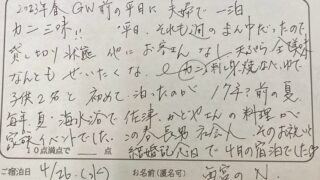 2023年春 GW前の平日に 夫婦で一泊
カニ三昧!! 平日、それも週のまん中だったので、
貸し切り状態 他にお客さんなし
なんともぜいたくな、カニ刺身、焼、なべ、ゆで
子供2名と 初めて 泊ったのが 17年?前の夏、
毎年 夏・海水浴で 佐津、かどやさんの料理が
家族イベントでした この春 長男 社会人、そのお祝いと
10点満点で 点 結婚記念日で 4月の宿泊でした
ご宿泊日 4/26 (水) お名前(匿名可)